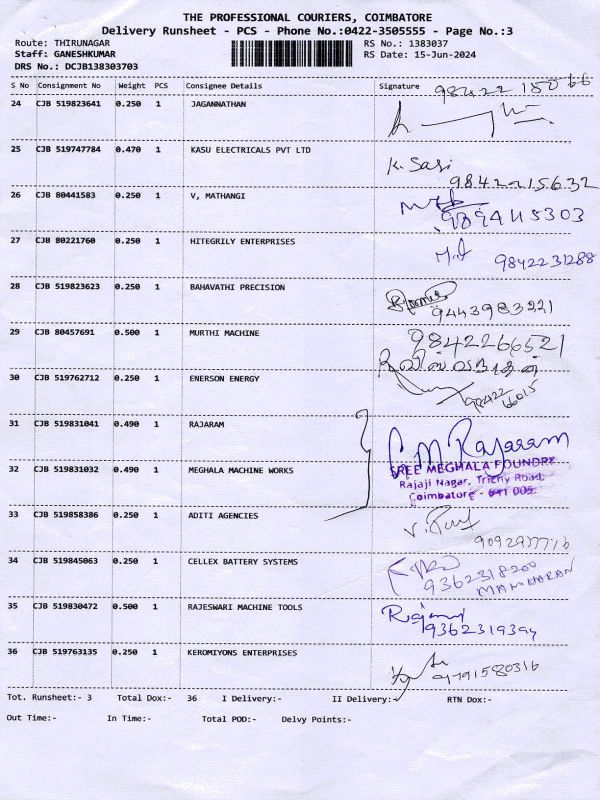 THE PROFESSIONAL COURIERS, COIMBATORE
Delivery Runsheet - PCS - Phone No.:0422-3505555 - Page No.:3
Route: THIRUNAGAR RS No.: 1383037
Staff: GANESHKUMAR RS Date: 15-Jun-2024
DRS No.: DCJB138303703
S No Consignment No Weight PCS Consignee Details Signature
98422 15066
24 CJB 519823641 0.250 1 JAGANNATHAN
25 CJB 519747784 0.470 1 KASU ELECTRICALS PVT LTD
K. Sasi
98422 15632
26 CJB 80441583 0.250 1 V, MATHANGI
9894115303
27 CJB 80221760 0.250 1 HITEGRILY ENTERPRISES
9842231288
28 CJB 519823623 0.250 1 BAHAVATHI PRECISION
9443983221
29 CJB 80457691 0.500 1 MURTHI MACHINE
9842266521
30 CJB 519762712 0.250 1 ENERSON ENERGY
98422
66015
31 CJB 519831041 0.490 1 RAJARAM
C.M Rajaram
32 CJB 519831032 0.490 1 MEGHALA MACHINE WORKS
SREE MEGHALA FOUNDRY
Rajaji Nagar, Trichy Road,
Coimbatore - 641 005
33 CJB 519858386 0.250 1 ADITI AGENCIES
34 CJB 519845063 0.250 1 CELLEX BATTERY SYSTEMS
9362318200
MANOHARAN
35 CJB 519830472 0.500 1 RAJESWARI MACHINE TOOLS
9362319394
36 CJB 519763135 0.250 1 KEROMIYONS ENTERPRISES
9791580316
Tot. Runsheet:- 3 Total Dox:- 36 I Delivery:- II Delivery:- RTN Dox:-
Out Time:- In Time:- Total POD:- Delvy Points:-